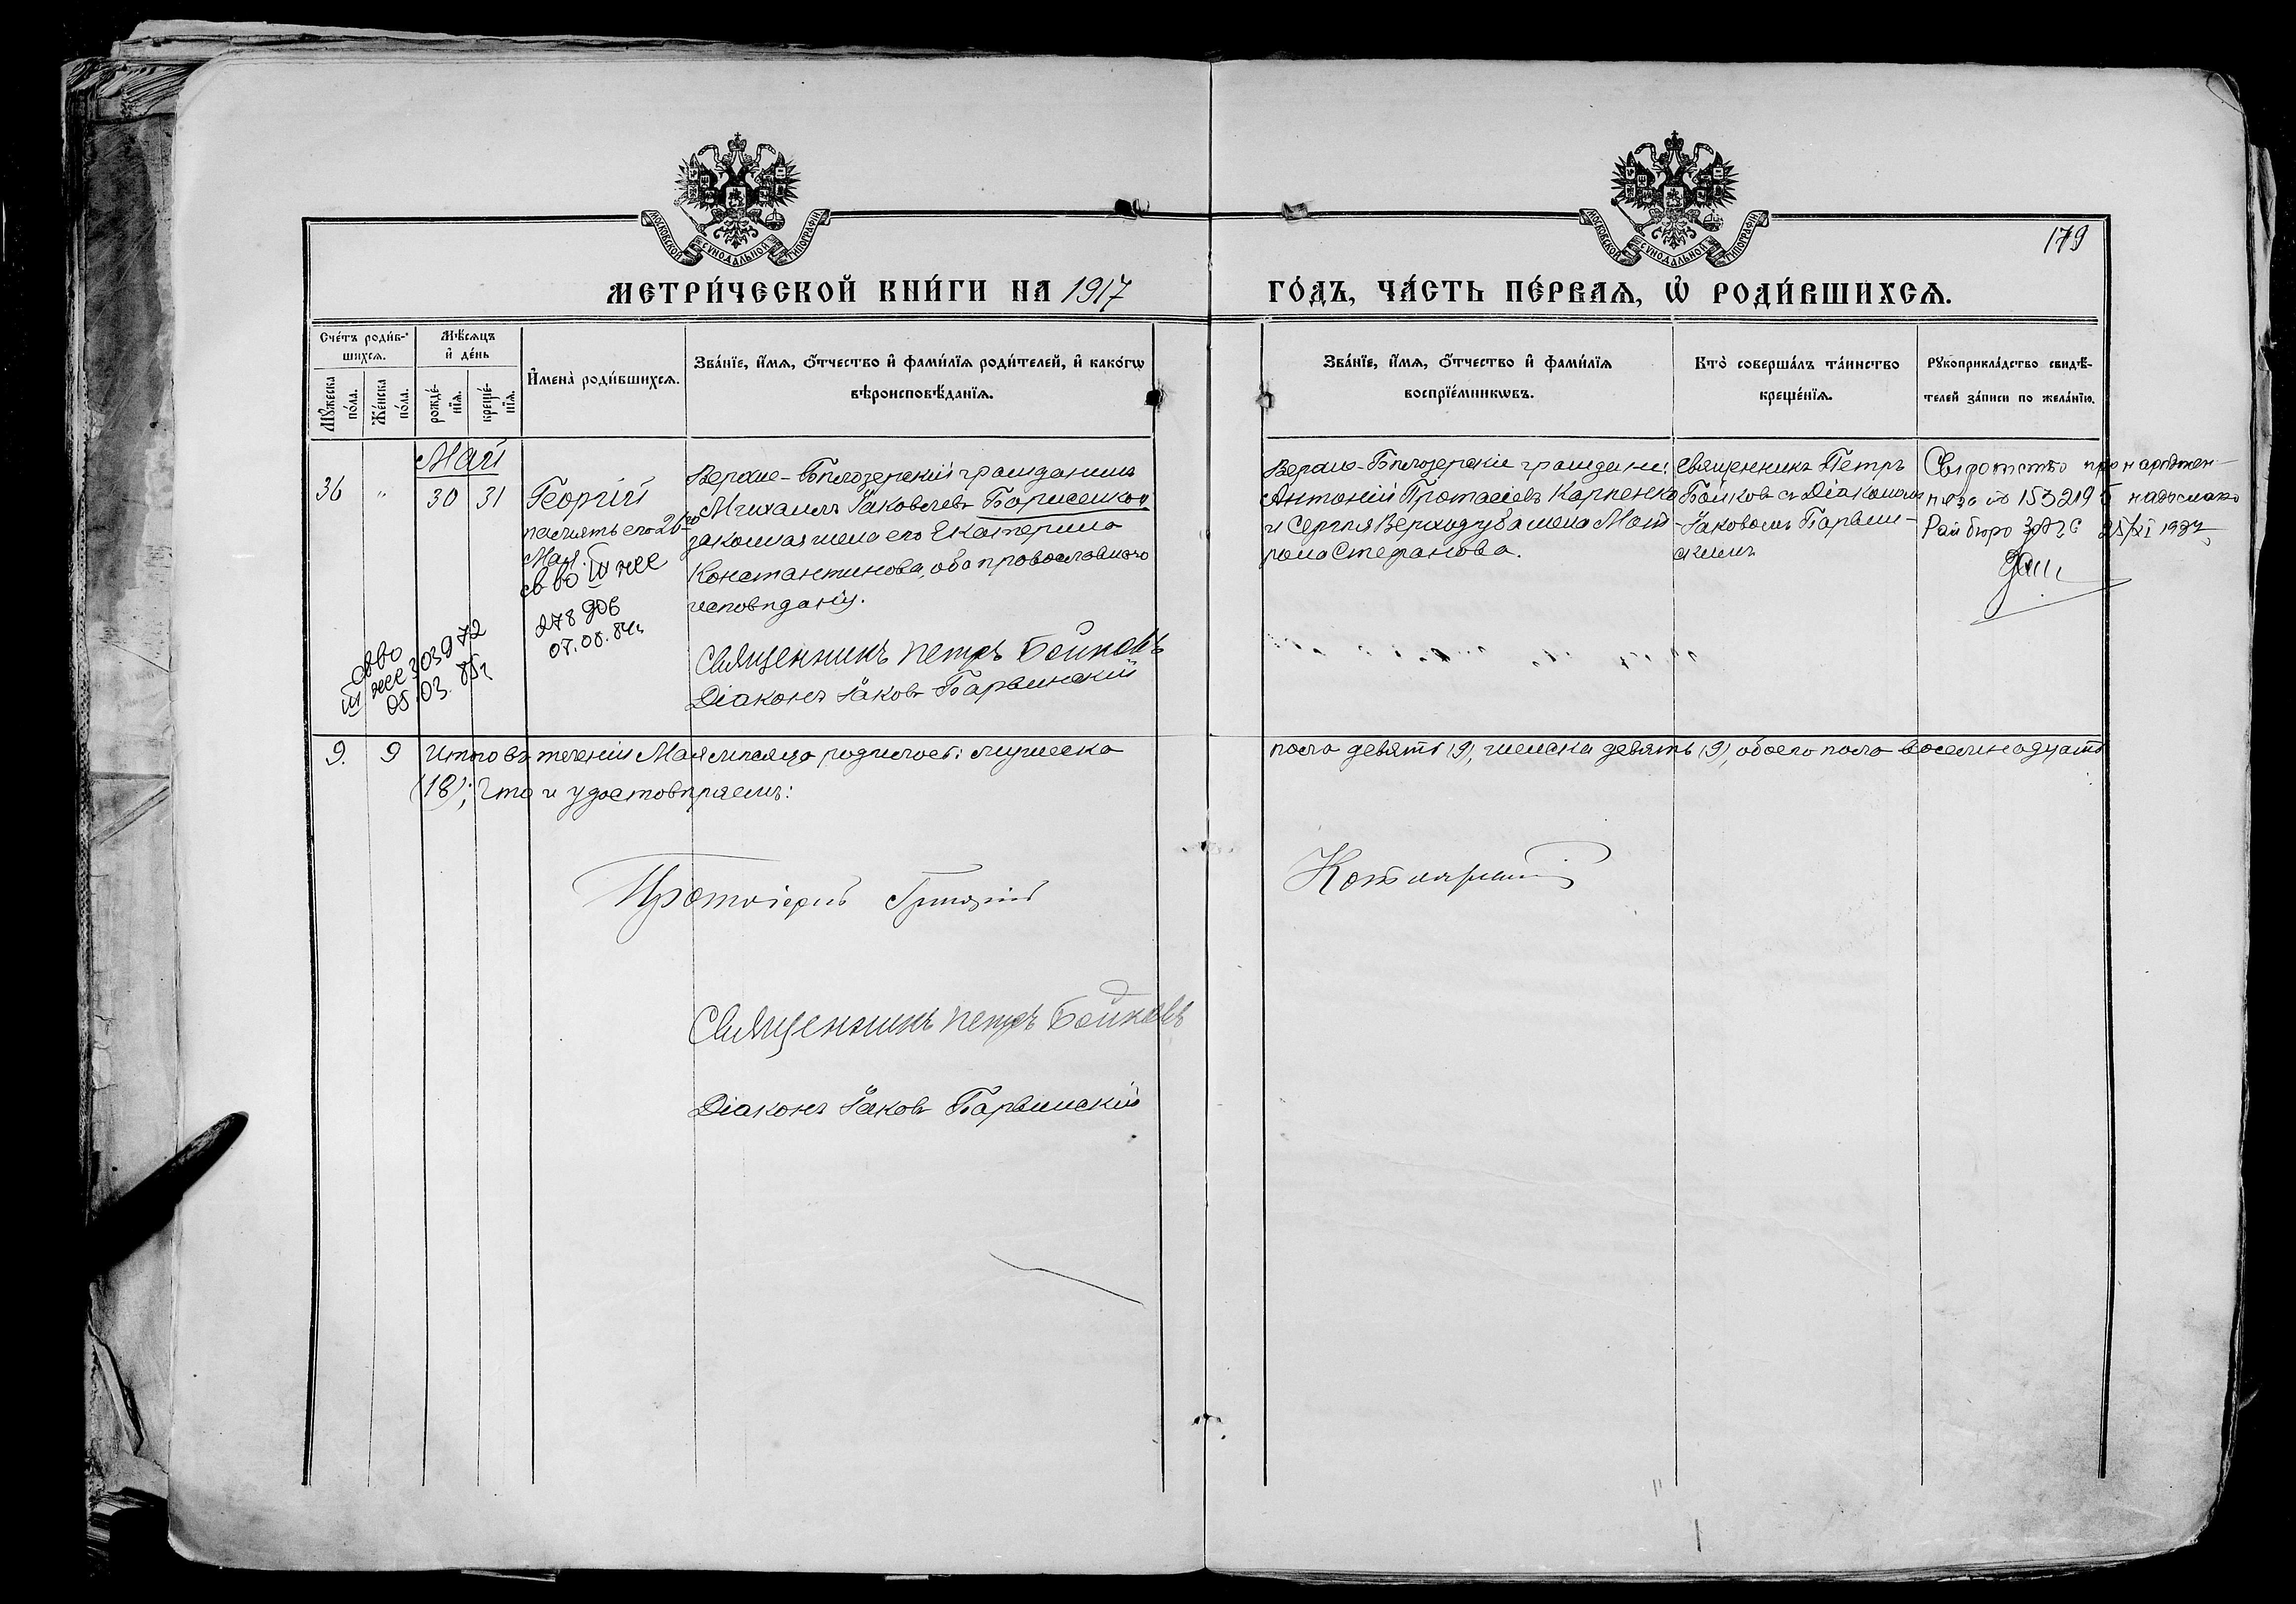 МОСКОВСКОЙ СѴНОДАЛЬНОЙ ТИПОГРАФІИ
МОСКОВСКОЙ СѴНОДАЛЬНОЙ ТИПОГРАФІИ
179
МЕТРИ́ЧЕСКОЙ КНИ́ГИ НА 1917
ГО́ДЪ, ЧА́СТЬ ПЕ́РВАѦ, Ѡ҆ РОДИ́ВШИХСѦ.
Сче́тъ роди́в-
шихсѧ.
Мꙋ́жеска
по́ла.
Же́нска
по́ла.
Мѣ́сѧцъ
и҆ де́нь
рожде́-
нїѧ.
креще́-
нїѧ.
И҆мена̀ роди́вшихсѧ.
Зва́нїе, и҆́мѧ, ѻ҆́тчество и҆ фами́лїѧ роди́телей, и҆ како́гѡ
вѣроисповѣ́данїѧ.
Зва́нїе, и҆́мѧ, ѻ҆́тчество и҆ фами́лїѧ
воспрїе́мникѡвъ.
Кто̀ соверша́лъ та́инство
креще́нїѧ.
Рꙋкоприкла́дство свидѣ́-
телей за́писи по жела́нїю.
Май
36 " 30 31
Георгій
память его 26го
Мая.
св во III же
278 906
07.08.84г
св во
III же 303972
05.03.85г
Верхне-Бѣлозерскій гражданинъ
Михаилъ Іаковлевъ Борисенко и
законная жена его Екатерина
Константинова, оба православнаго
исповѣданія.
Священникъ Петръ Бойковъ
Діаконъ Іаковъ Барвинскій
Верхне-Бѣлозерскіе граждане:
Антоній Протасіевъ Карпенко
и Сергія Верходуба жена Мат-
рона Стефанова.
Священникъ Петръ
Бойковъ съ Діакономъ
Іаковомъ Барвин-
скимъ
Свідотство про народжен-
ня за № 153219 надіслано
Рай бюро ЗАГС
9. 9 Итого въ теченіи Мая мѣсяца родилось: мужеска
пола девять (9), женска девять (9), обоего пола восемнадцать
(18); Что и удостовѣряемъ:
Протоіерей Григорій
Котляревскій
Священникъ Петръ Бойковъ
Діаконъ Іаковъ Барвинскій